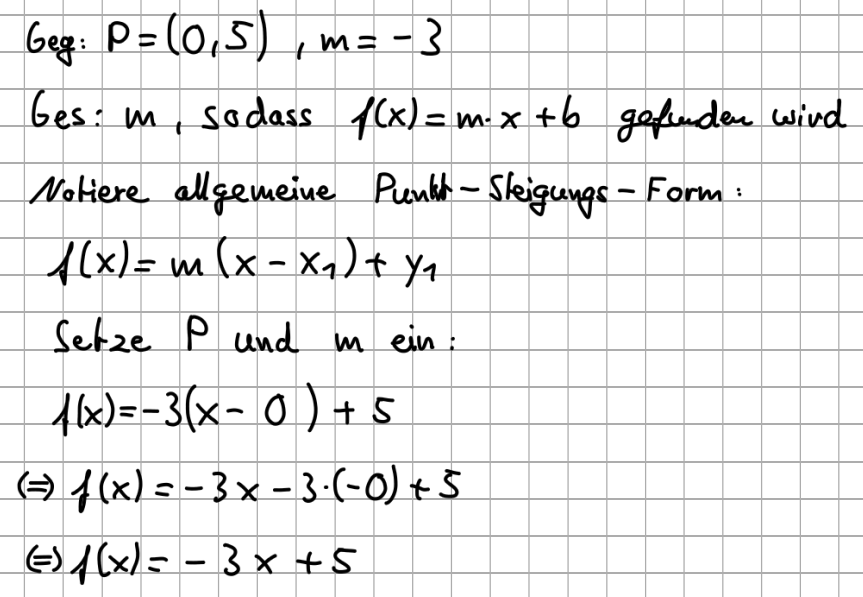 Geg: P = (0,5) , m = -3
Ges: m , sodass f(x) = m · x + b gefunden wird
Notiere allgemeine Punkt - Steigungs - Form :
f(x) = m (x - x₁) + y₁
Setze P und m ein :
f(x) = -3(x - 0 ) + 5
(⇒) f(x) = -3x - 3·(-0) + 5
(⇒) f(x) = - 3x + 5